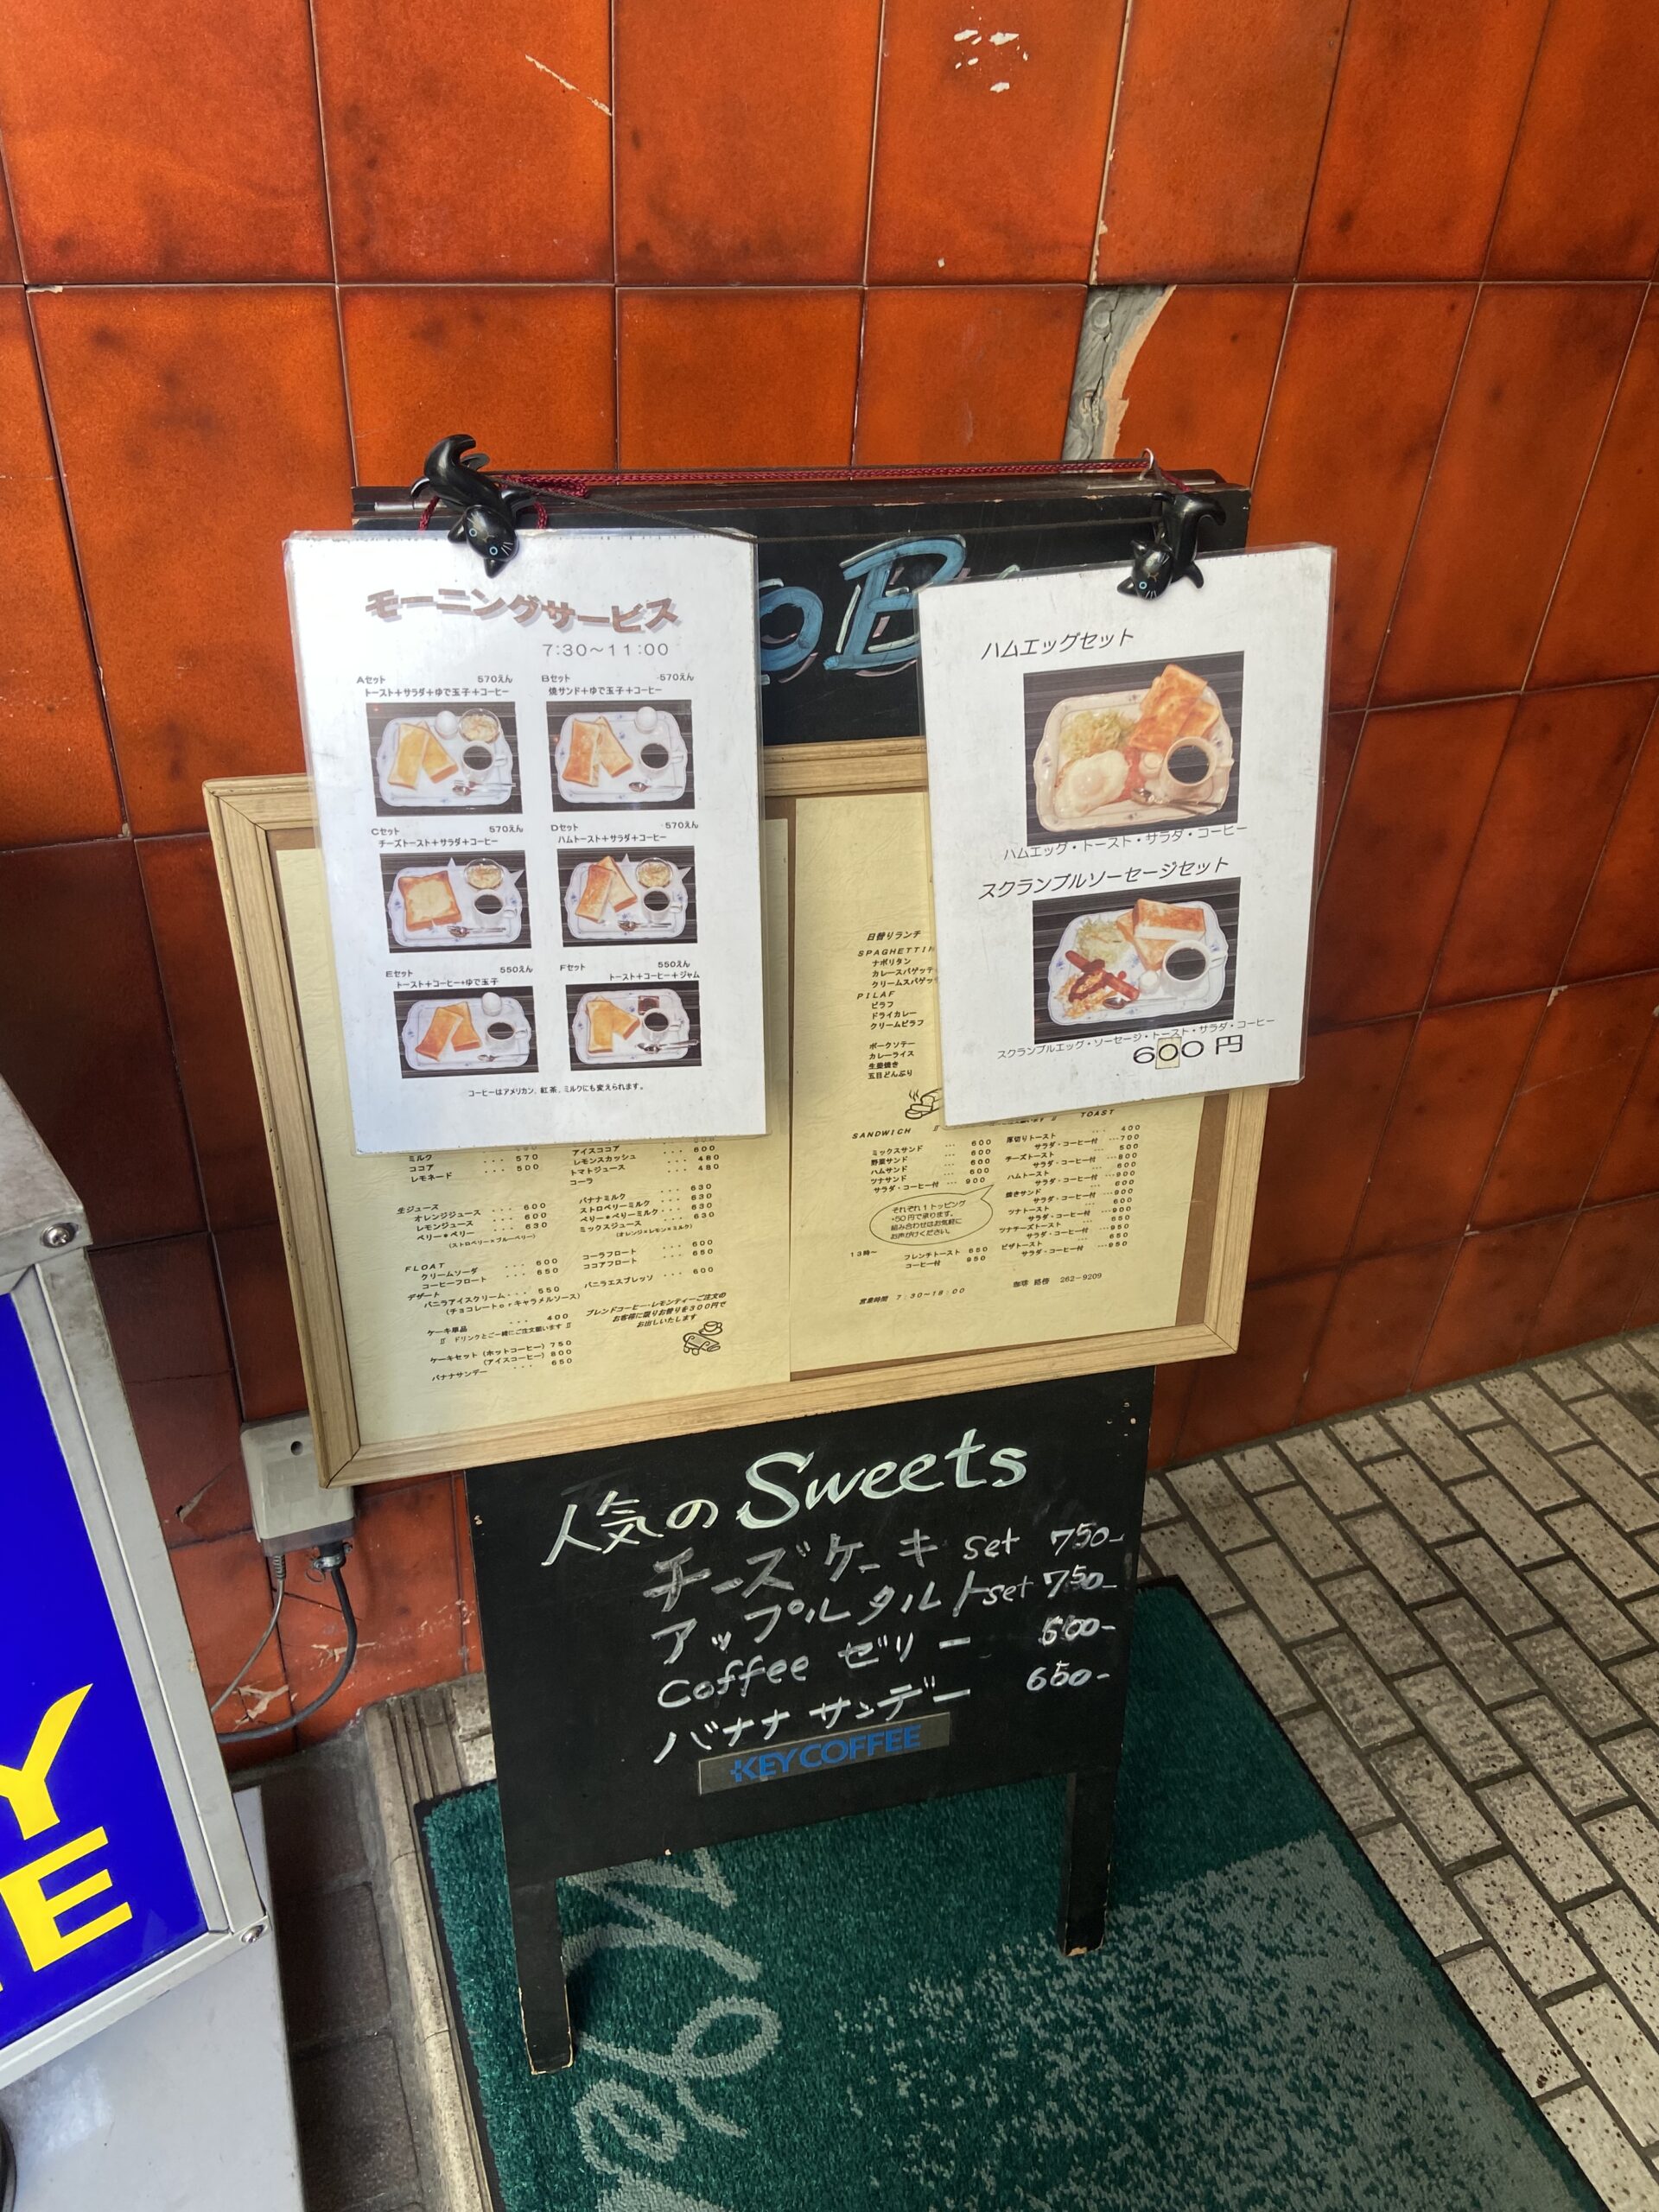 モーニングサービス
7:30～11:00
Aセット 570えん
トースト＋サラダ＋ゆで玉子＋コーヒー
Bセット 570えん
焼サンド＋ゆで玉子＋コーヒー
Cセット 570えん
チーズトースト＋サラダ＋コーヒー
Dセット 570えん
ハムトースト＋サラダ＋コーヒー
Eセット 550えん
トースト＋コーヒー＋ゆで玉子
Fセット 550えん
トースト＋コーヒー＋ジャム
コーヒーはアメリカン、紅茶、ミルクにも変えられます。
ハムエッグセット
ハムエッグ・トースト・サラダ・コーヒー
スクランブルソーセージセット
スクランブルエッグ・ソーセージ・トースト・サラダ・コーヒー
600円
日替りランチ
ナポリタン
カレースパゲッテ
クリームスパゲッ
PILAF
ピラフ
ドライカレー
クリームピラフ
ポークソテー
カレーライス
生姜焼き
五目どんぶり
ミルク ... 570
ココア ... 500
レモネード
アイスココア ... 600
レモンスカッシュ ... 480
トマトジュース ... 480
コーラ
生ジュース
オレンジジュース ... 600
レモンジュース ... 600
ベリー＊ベリー ... 630
(ストロベリー＊ブルーベリー)
バナナミルク ... 630
ストロベリーミルク ... 630
ベリー＊ベリーミルク ... 630
ミックスジュース ... 630
(オレンジ＊レモン＊ミルク)
FLOAT
クリームソーダ ... 600
コーヒーフロート ... 650
コーラフロート ... 600
ココアフロート ... 650
デザート
バニラアイスクリーム ... 550
(チョコレートorキャラメルソース)
バニラエスプレッソ ... 600
ケーキ単品 ... 400
!! ドリンクとご一緒にご注文願います !!
ケーキセット (ホットコーヒー) 750
(アイスコーヒー) 800
バナナサンデー ... 650
ブレンドコーヒー・レモンティーご注文の
お客様に限りお替りを300円で
お出しいたします
SANDWICH
ミックスサンド ... 600
野菜サンド ... 600
ハムサンド ... 600
ツナサンド ... 600
サラダ・コーヒー付 ... 900
それぞれ1トッピング
+50円で承ります。
組み合わせはお気軽に
お声がけください。
13時～
フレンチトースト 650
コーヒー付 950
TOAST
厚切りトースト ... 400
サラダ・コーヒー付 ... 700
チーズトースト 500
サラダ・コーヒー付 ... 800
ハムトースト 600
サラダ・コーヒー付 ... 900
焼きサンド 600
サラダ・コーヒー付 ... 900
ツナトースト 600
サラダ・コーヒー付 ... 900
ツナチーズトースト 650
サラダ・コーヒー付 ... 950
ピザトースト 650
サラダ・コーヒー付 ... 950
営業時間 7:30～18:00
珈琲 262-9209
人気のSweets
チーズケーキ set 750-
アップルタルトset 750-
Coffeeゼリー 600-
バナナサンデー 650-
KEY COFFEE